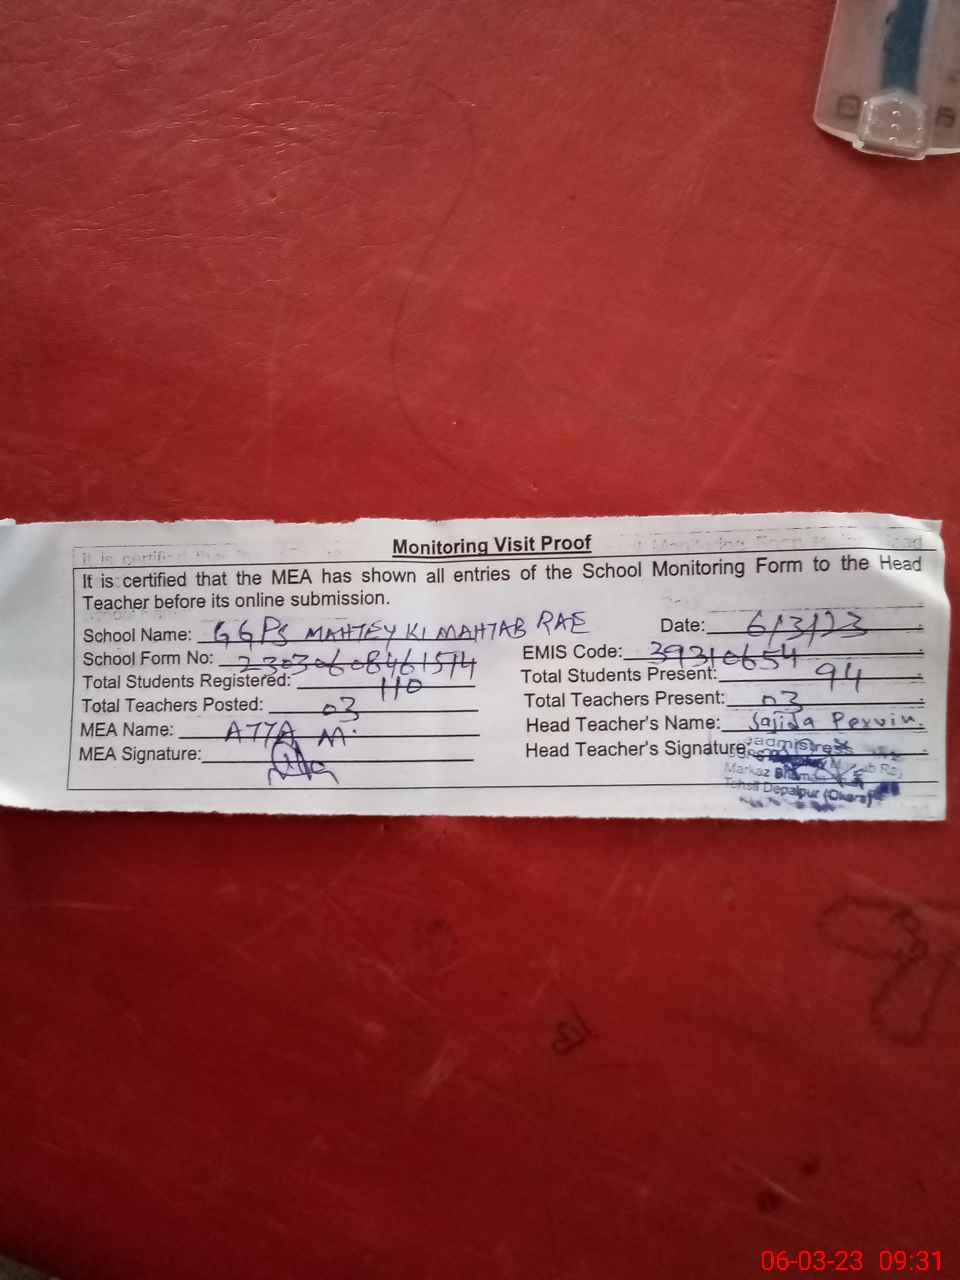 Monitoring Visit Proof
It is certified that the MEA has shown all entries of the School Monitoring Form to the Head
Teacher before its online submission.
School Name: GGPS MAHTEY KI MAHTAB RAE Date: 6/3/23
School Form No: 23030608461514 EMIS Code: 39310654
Total Students Registered: 110 Total Students Present: 94
Total Teachers Posted: 03 Total Teachers Present: 03
MEA Name: ATTA M. Head Teacher's Name: Sajida Pervin
MEA Signature: Head Teacher's Signature:
Markaz
Tehsil Depalpur (Okara)
06-03-23 09:31